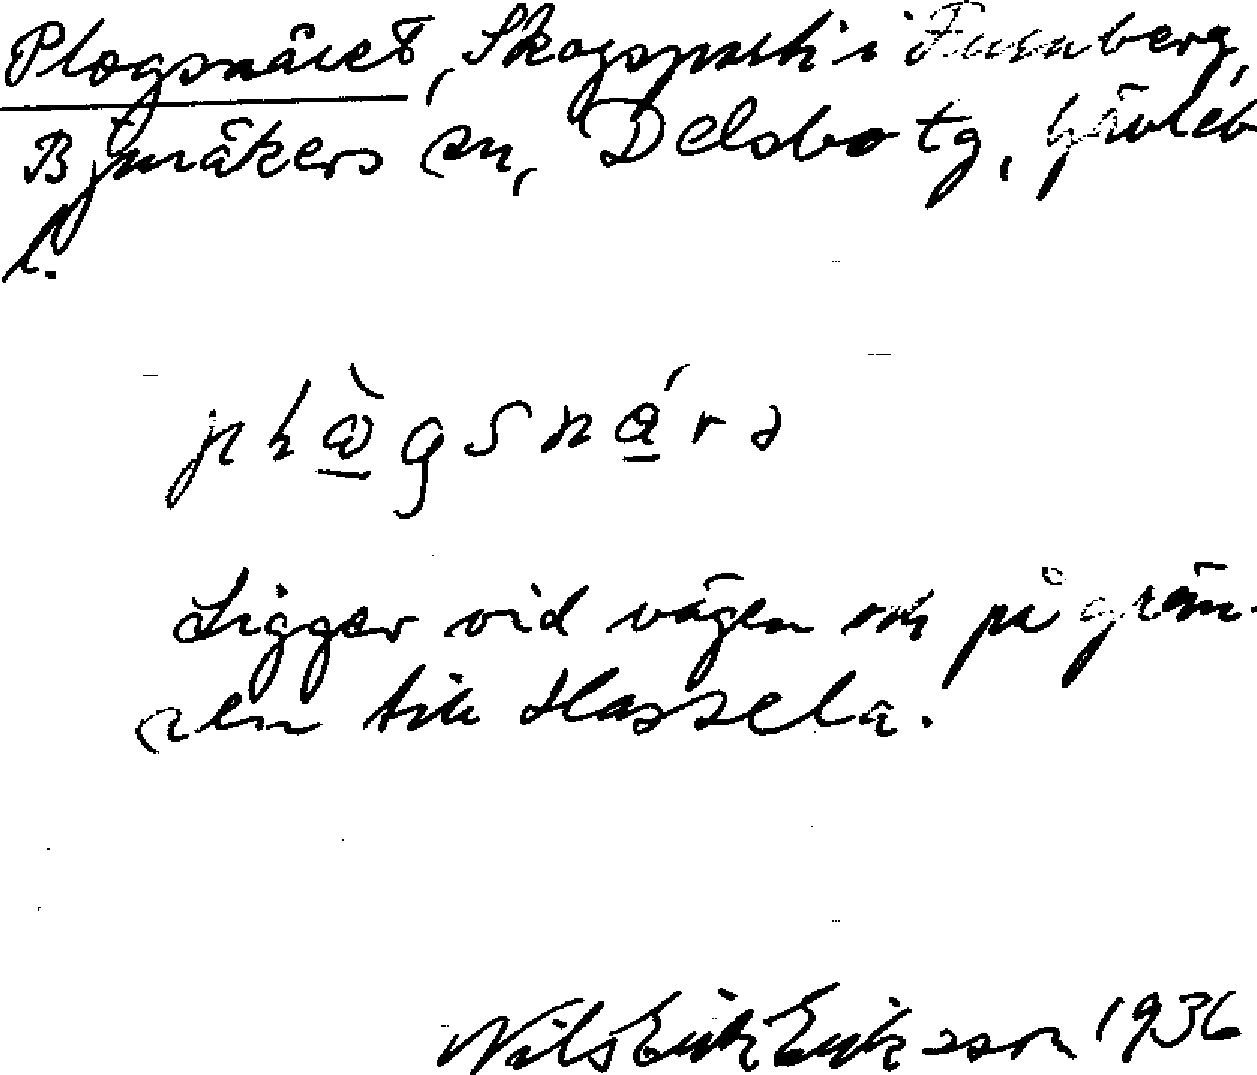 Plogsnåret, Skogsparti i Furuberg,
Bjuråkers sn, Delsbo tg, Gävleb
l.
plὼ̲gsná̲rə
Ligger vid vägen och på grän-
sen till Hassela.
Nils Erik Eriksson 1936